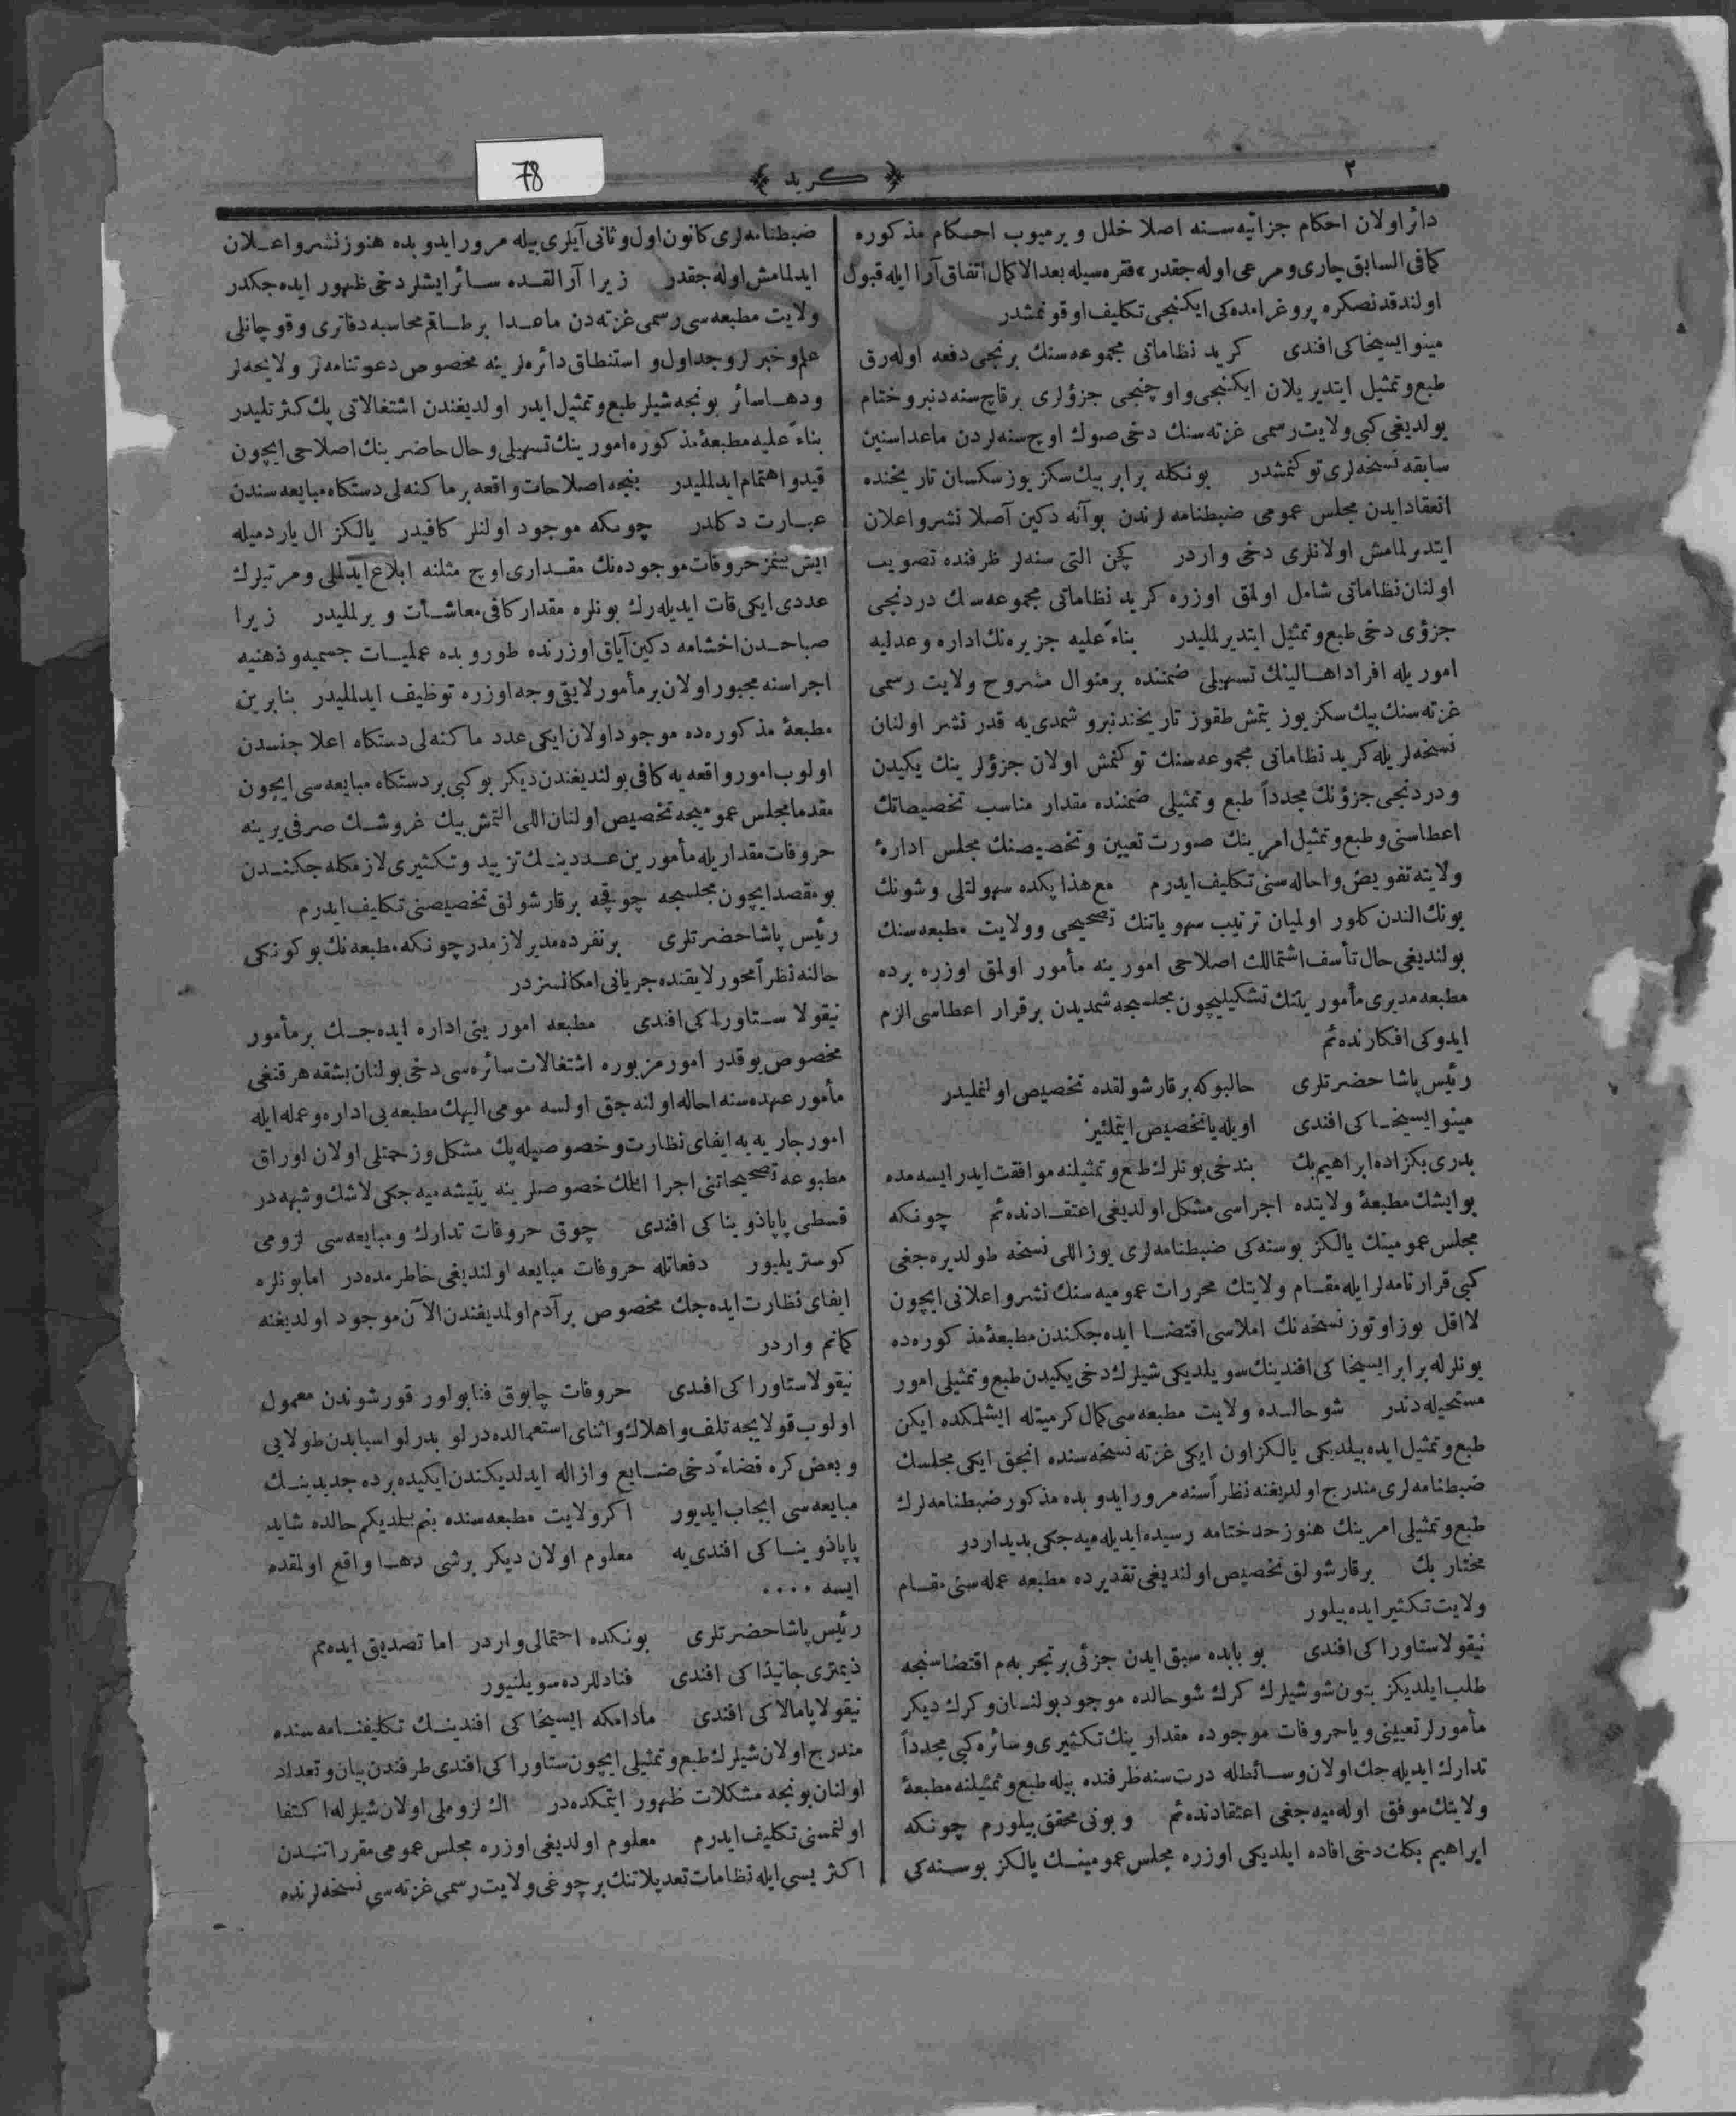 ٢
﴿ كريد ﴾
78
دائر اولان احكام جزائيه سنه اصلا خلل ويرميوب احكام مذكوره
كمافى السابق جارى و مرعى اوله جقدر » فقره سيله بعد الاكمال اتفاق آرا ايله قبول
اولندقدنصكره پروغرامده كى ايكنجى تكليف اوقونمشدر
مينو ايسيخاكى افندى كريد نظاماتى مجموعه سنك برنجى دفعه اوله رق
طبع و تمثيل ايتديريلان ايكنجى و اوچنجى جزؤلرى برقاچ سنه دنبرو ختام
بولديغى كبى ولايت رسمى غزته سنك دخى صوك اوچ سنه لردن ماعدا سنين
سابقه نسخه لرى توكنمشدر بونكله برابر بيك سكز يوز سكسان تاريخنده
انعقاد ايدن مجلس عمومى ضبطنامه لرندن بوآنه دكين آصلا نشر و اعلان
ايتديرلمامش اولانلرى دخى واردر كچن التى سنه لر ظرفنده تصويب
اولنان نظاماتى شامل اولمق اوزره كريد نظاماتى مجموعه سنك دردنجى
جزؤى دخى طبع و تمثيل ايتديرلمليدر بناءً عليه جزيره نك اداره و عدليه
امور يله افراد اهالينك تسهيلى ضمننده برمنوال مشروح ولايت رسمى
غزته سنك بيك سكز يوز يتمش طقوز تاريخندنبرو شمدى يه قدر نشر اولنان
نسخه لريله كريد نظاماتى مجموعه سنك توكنمش اولان جزؤلرينك يكيدن
و دردنجى جزؤنك مجدداً طبع و تمثيلى ضمننده مقدار مناسب تخصيصاتك
اعطاسنى و طبع و تمثيل امرينك صورت تعيين و تخصيصنك مجلس اداره‌ٔ
ولايته تفويض و احاله سنى تكليف ايدرم مع هذا پكده سهولتلى و شونك
بونك الندن كلور اولميان ترتيب سهوياتنك تصحيحى و ولايت مطبعه سنك
بولنديغى حال تأسف اشتمالك اصلاحى امورينه مأمور اولمق اوزره برده
مطبعه مديرى مأموريتنك تشكيليچون مجلسجه شمديدن برقرار اعطاسى الزم
ايدوكى افكارنده ئم
رئيس پاشا حضرتلرى حالبوكه برقارشولقده تخصيص اولنمليدر
مينو ايسيخاكى افندى اويله يا تخصيص ايتمليئز
بدرى بكزاده ابراهيم بك بندخى بونلرك طبع و تمثيلنه موافقت ايدر ايسه مده
بو ايشك مطبعه‌ٔ ولايتده اجراسى مشكل اولديغى اعتقادنده ئم چونكه
مجلس عمومينك يالكز بوسنه كى ضبطنامه لرى يوز اللى نسخه طولديره جغى
كبى قرارنامه لر ايله مقام ولايتك محررات عموميه سنك نشر و اعلانى ايچون
لااقل يوز اوتوز نسخه نك املاسى اقتضا ايده جكندن مطبعه‌ٔ مذكوره ده
بونلرله برابر ايسيخاكى افندينك سويلديكى شيلرك دخى يكيدن طبع و تمثيلى امور
مستحيله دندر شو حالده ولايت مطبعه سى كمال كرميتله ايشلمكده ايكن
طبع و تمثيل ايده بيلديكى يالكز اون ايكى غزته نسخه سنده انجق ايكى مجلسك
ضبطنامه لرى مندرج اولديغنه نظراً سنه مرور ايدوبده مذكور ضبطنامه لرك
طبع و تمثيلى امرينك هنوز حد ختامه رسيده ايديله ميه جكى بديداردر
مختار بك برقارشولق تخصيص اولنديغى تقديرده مطبعه عمله سنى مقام
ولايت تكثير ايده بيلور
نيقولا ستاوراكى افندى بو بابده سبق ايدن جزئى برتجربه م اقتضاسنجه
طلب ايلديكز بتون شو شيلرك كرك شو حالده موجود بولنان و كرك ديكر
مأمورلر تعيينى و يا حروفات موجوده مقدارينك تكثيرى و سائره كبى مجدداً
تدارك ايديله جك اولان وسائطله درت سنه ظرفنده بيله طبع و تمثيلنه مطبعه‌ٔ
ولايتك موفق اوله ميه جغى اعتقادنده ئم و بونى محقق بيلورم چونكه
ابراهيم بكك دخى افاده ايلديكى اوزره مجلس عمومينك يالكز بوسنه كى
ضبطنامه لرى كانون اول و ثانى آيلرى بيله مرور ايدوبده هنوز نشر و اعلان
ايدلمامش اوله جقدر زيرا آرالقده سائر ايشلر دخى ظهور ايده جكدر
ولايت مطبعه سى رسمى غزته دن ماعدا برطاقم محاسبه دفاترى و قوچانلى
علم و خبرلر و جداول و استنطاق دائره لرينه مخصوص دعوتنامه لر و لايحه لر
و دها سائر بونجه شيلر طبع و تمثيل ايدر اولديغندن اشتغالاتى پك كثرتليدر
بناءً عليه مطبعه‌ٔ مذكوره امورينك تسهيلى و حال حاضرينك اصلاحى ايچون
قيد و اهتمام ايدلمليدر بنجه اصلاحات واقعه برماكنه لى دستكاه مبايعه سندن
عبارت دكلدر چونكه موجود اولنلر كافيدر يالكز ال ياردميله
ايش بيتمز حروفات موجوده نك مقدارى اوچ مثلنه ابلاغ ايدلملى و مرتبلرك
عددى ايكى قات ايديله رك بونلره مقدار كافى معاشات ويرلمليدر زيرا
صباحدن اخشامه دكين آياق اوزرنده طوروبده عمليات جسميه و ذهنيه
اجراسنه مجبور اولان برمأمور لايق وجه اوزره توظيف ايدلمليدر بنابرين
مطبعه‌ٔ مذكوره ده موجود اولان ايكى عدد ماكنه لى دستكاه اعلا جنسدن
اولوب امور واقعه يه كافى بولنديغندن ديكر بوكبى بر دستكاه مبايعه سى ايچون
مقدما مجلس عموميجه تخصيص اولنان اللى التمش بيك غروشك صرفى يرينه
حروفات مقداريله مأمورين عددينك تزييد و تكثيرى لازمكله جكندن
بو مقصد ايچون مجلسجه چوقجه برقارشولق تخصيصنى تكليف ايدرم
رئيس پاشا حضرتلرى برنفرده مدير لازمدر چونكه مطبعه نك بوكونكى
حالنه نظراً امحور لايقنده جريانى امكانسزدر
نيقولا ستاوراكى افندى مطبعه امورينى اداره ايده جك برمأمور
مخصوص بوقدر امور مزبوره اشتغالات سائره سى دخى بولنان بشقه هرقنغى
مأمور عهده سنه احاله اولنه جق اولسه مومى اليهك مطبعه يى اداره و عمله ايله
امور جاريه يه ايفاى نظارت و خصوصيله پك مشكل و زحمتلى اولان اوراق
مطبوعه تصحيحاتنى اجرا ائلك خصوصلرينه يتيشه ميه جكى لاشك و شبهه در
قسطى پاپاذويناكى افندى چوق حروفات تدارك و مبايعه سى لزومى
كوستريليور دفعاتله حروفات مبايعه اولنديغى خاطرمده در اما بونلره
ايفاى نظارت ايده جك مخصوص برآدم اولمديغندن الآن موجود اولديغنه
كمانم واردر
نيقولا ستاوراكى افندى حروفات چابوق فنا بولور قورشوندن معمول
اولوب قولايجه تلف و اهلاك و اثناى استعمالده درلو بدرلو اسبابدن طولايى
و بعض كره قضاءً دخى ضايع و ازاله ايدلديكندن ايكيده برده جديدينك
مبايعه سى ايجاب ايديور اكر ولايت مطبعه سنده بنم بيلديكم حالده شايد
پاپاذويناكى افندى يه معلوم اولان ديكر برشى دها واقع اولمقده
ايسه ....
رئيس پاشا حضرتلرى بونكده احتمالى واردر اما تصديق ايده مم
ذيمترى جانيذاكى افندى فنادللرده سويلنيور
نيقولا يامالاكى افندى مادامكه ايسيخاكى افندينك تكليفنامه سنده
مندرج اولان شيلرك طبع و تمثيلى ايچون ستاوراكى افندى طرفندن بيان و تعداد
اولنان بونجه مشكلات ظهور ايتمكده در اك لزوملى اولان شيلرله اكتفا
اولنمسنى تكليف ايدرم معلوم اولديغى اوزره مجلس عمومى مقرراتندن
اكثريسى ايله نظامات تعديلاتنك برچوغى ولايت رسمى غزته سى نسخه لرنده